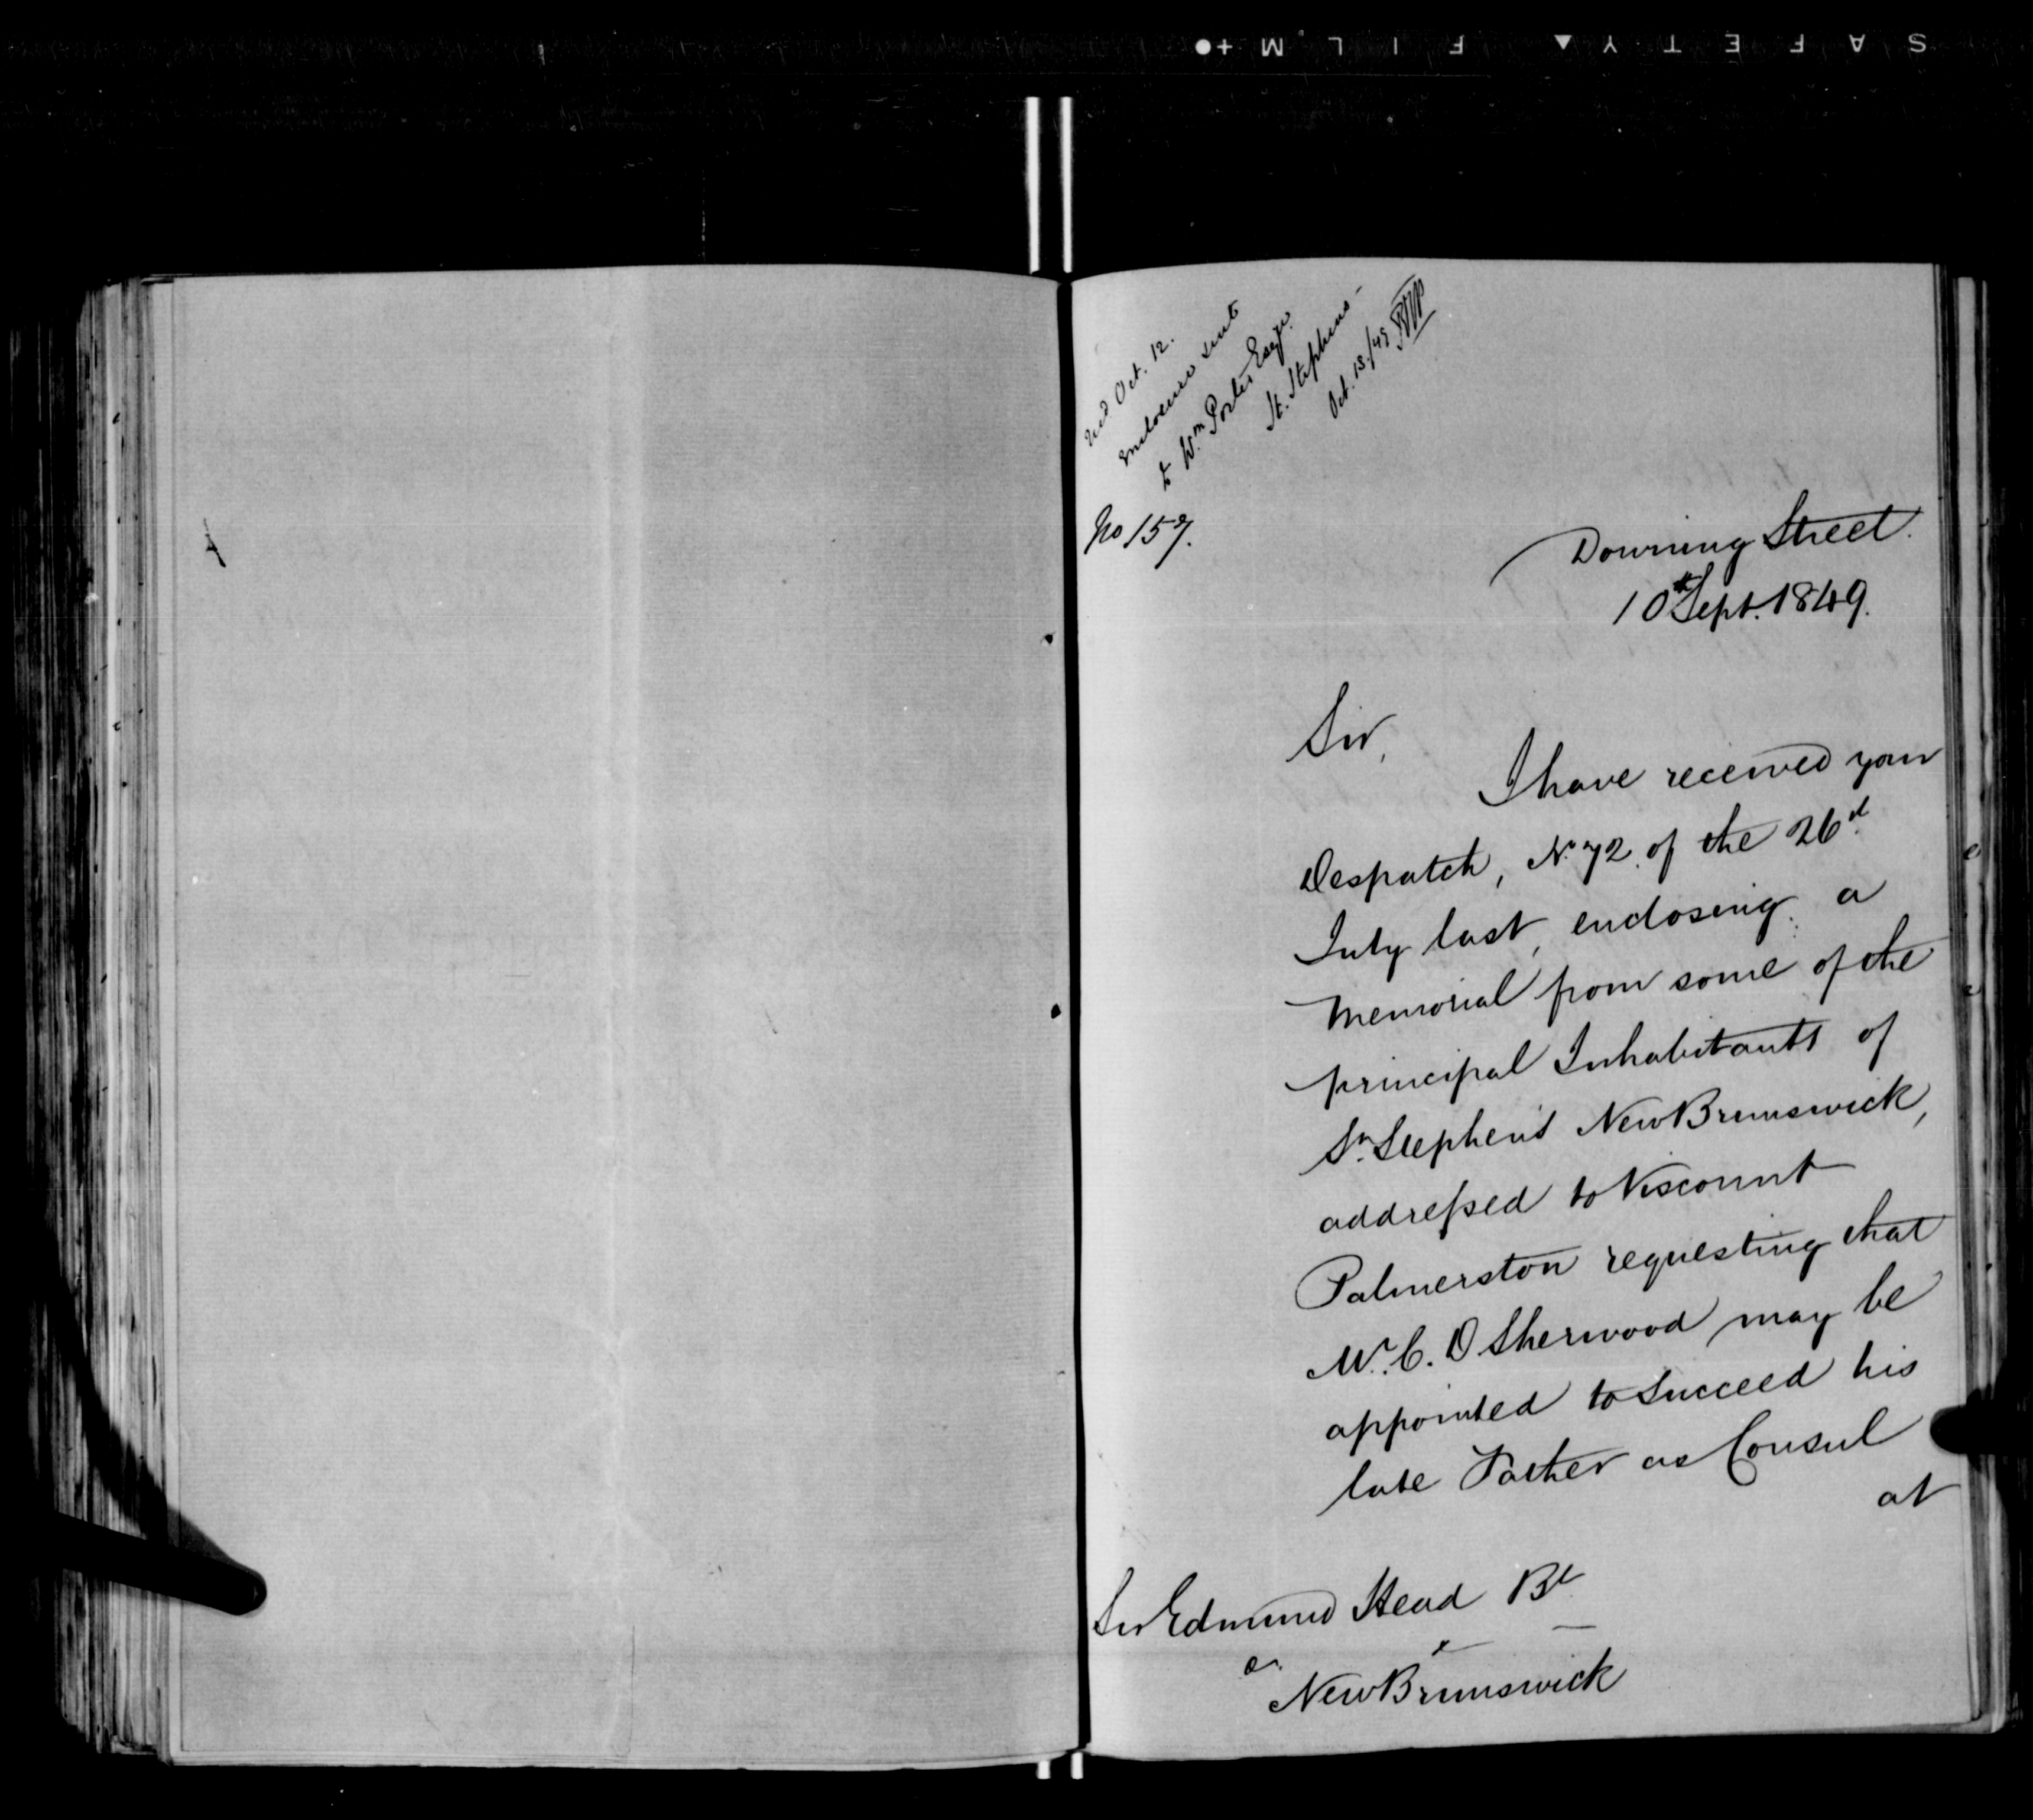 SAFETY FILM
recd Oct. 12.
Enclosure sent
to Wm Porter Esqr.
St. Stephens -
Oct. 18./49
No 157.
Downing Street.
10th Sept. 1849.
Sir,
I have received your
Despatch, No 72 of the 26d
July last, enclosing a
Memorial from some of the
principal Inhabitants of
St. Stephens New Brunswick,
addressed to Viscount
Palmerston requesting that
Mr. C. D Sherwood may be
appointed to succeed his
late Father as Consul
at
Sir Edmund Head Bt
&c &c
New Brunswick